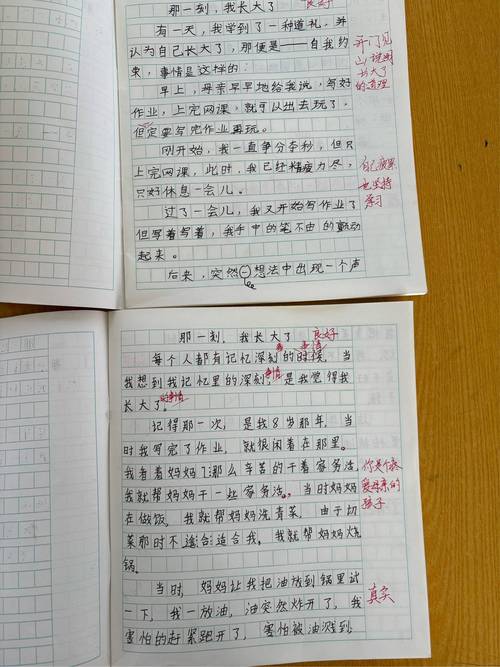 那一刻，我长大了 良好
有一天，我学到了一种道礼，并
认为自己长大了，那便是——自我约
束，事情是这样的：
早上，母亲早早地给我说，写好
作业，上完网课，就可以出去玩了，
但定要写完作业再玩。
刚开始，我一直争分夺秒，但只
上完网课，此时，我已经精疲力尽，
只好休息一会儿。
过了一会儿，我又开始写作业了
但写着写着，我手中的笔不由的颤动
起来。
后来，突然㊀想法中出现一个声
开门见
山说明
长大了
的道理
自己疲累
也坚持
学习
那一刻，我长大了 良好
每个人都有记忆深刻的时候，当
事情
我想到我记忆里的深刻，是我觉得我
事情
长大了。
事情
记得那一次，是我8岁那年，当
时我写完了作业，就很闲着在那里。
我者着妈妈了那么辛苦的干着家务活，
我就帮妈妈干一些家务活。，当时妈妈
在做饭，我就帮妈妈洗青菜，由于切
菜那时不适合适合我，我就帮妈妈烧
锅。
当时，妈妈让我把油放到锅里试
一下，我一放油，油突然炸开了，我
害怕的赶紧跑开了，害怕被油溅到
你是个疼
爱母亲的
孩子
真实